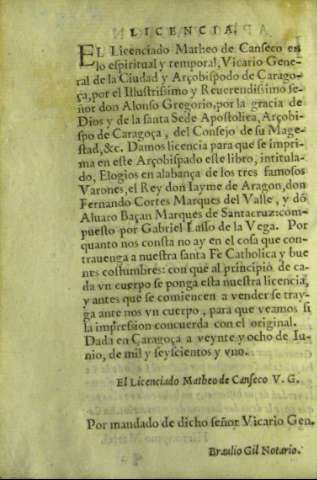 LICENCIA.
EL Licenciado Matheo de Canseco en
lo espiritual y temporal, Vicario Gene-
ral de la Ciudad y Arçobispodo de Carago-
ça, por el Illustrissimo y Reuerendissimo se-
ñor don Alonso Gregorio, por la gracia de
Dios y de la santa Sede Apostolica, Arçobi-
spo de Caragoça, del Consejo de su Mage-
stad, &c. Damos licencia para que se impri-
ma en este Arçobispado este libro, intitula-
do, Elogios en alabança de los tres famosos
Varones, el Rey don Iayme de Aragon, don
Fernando Cortes Marques del Valle, y dõ
Aluaro Baçan Marques de Santacruz: com-
puesto por Gabriel Lasso de la Vega. Por
quanto nos consta no ay en el cosa que con-
trauenga a nuestra santa Fe Catholica y bue
nes costumbres: con que al principio de ca-
da vn cuerpo se ponga esta nuestra licencia,
y antes que se comiencen a vender se tray-
ga ante nos vn cuerpo, para que veamos si
la impression concuerda con el original.
Dada en Caragoça a veynte y ocho de Iu-
nio, de mil y seyscientos y vno.
El Licenciado Matheo de Canseco V. G.
Por mandado de dicho señor Vicario Gen.
Braulio Gil Notario.